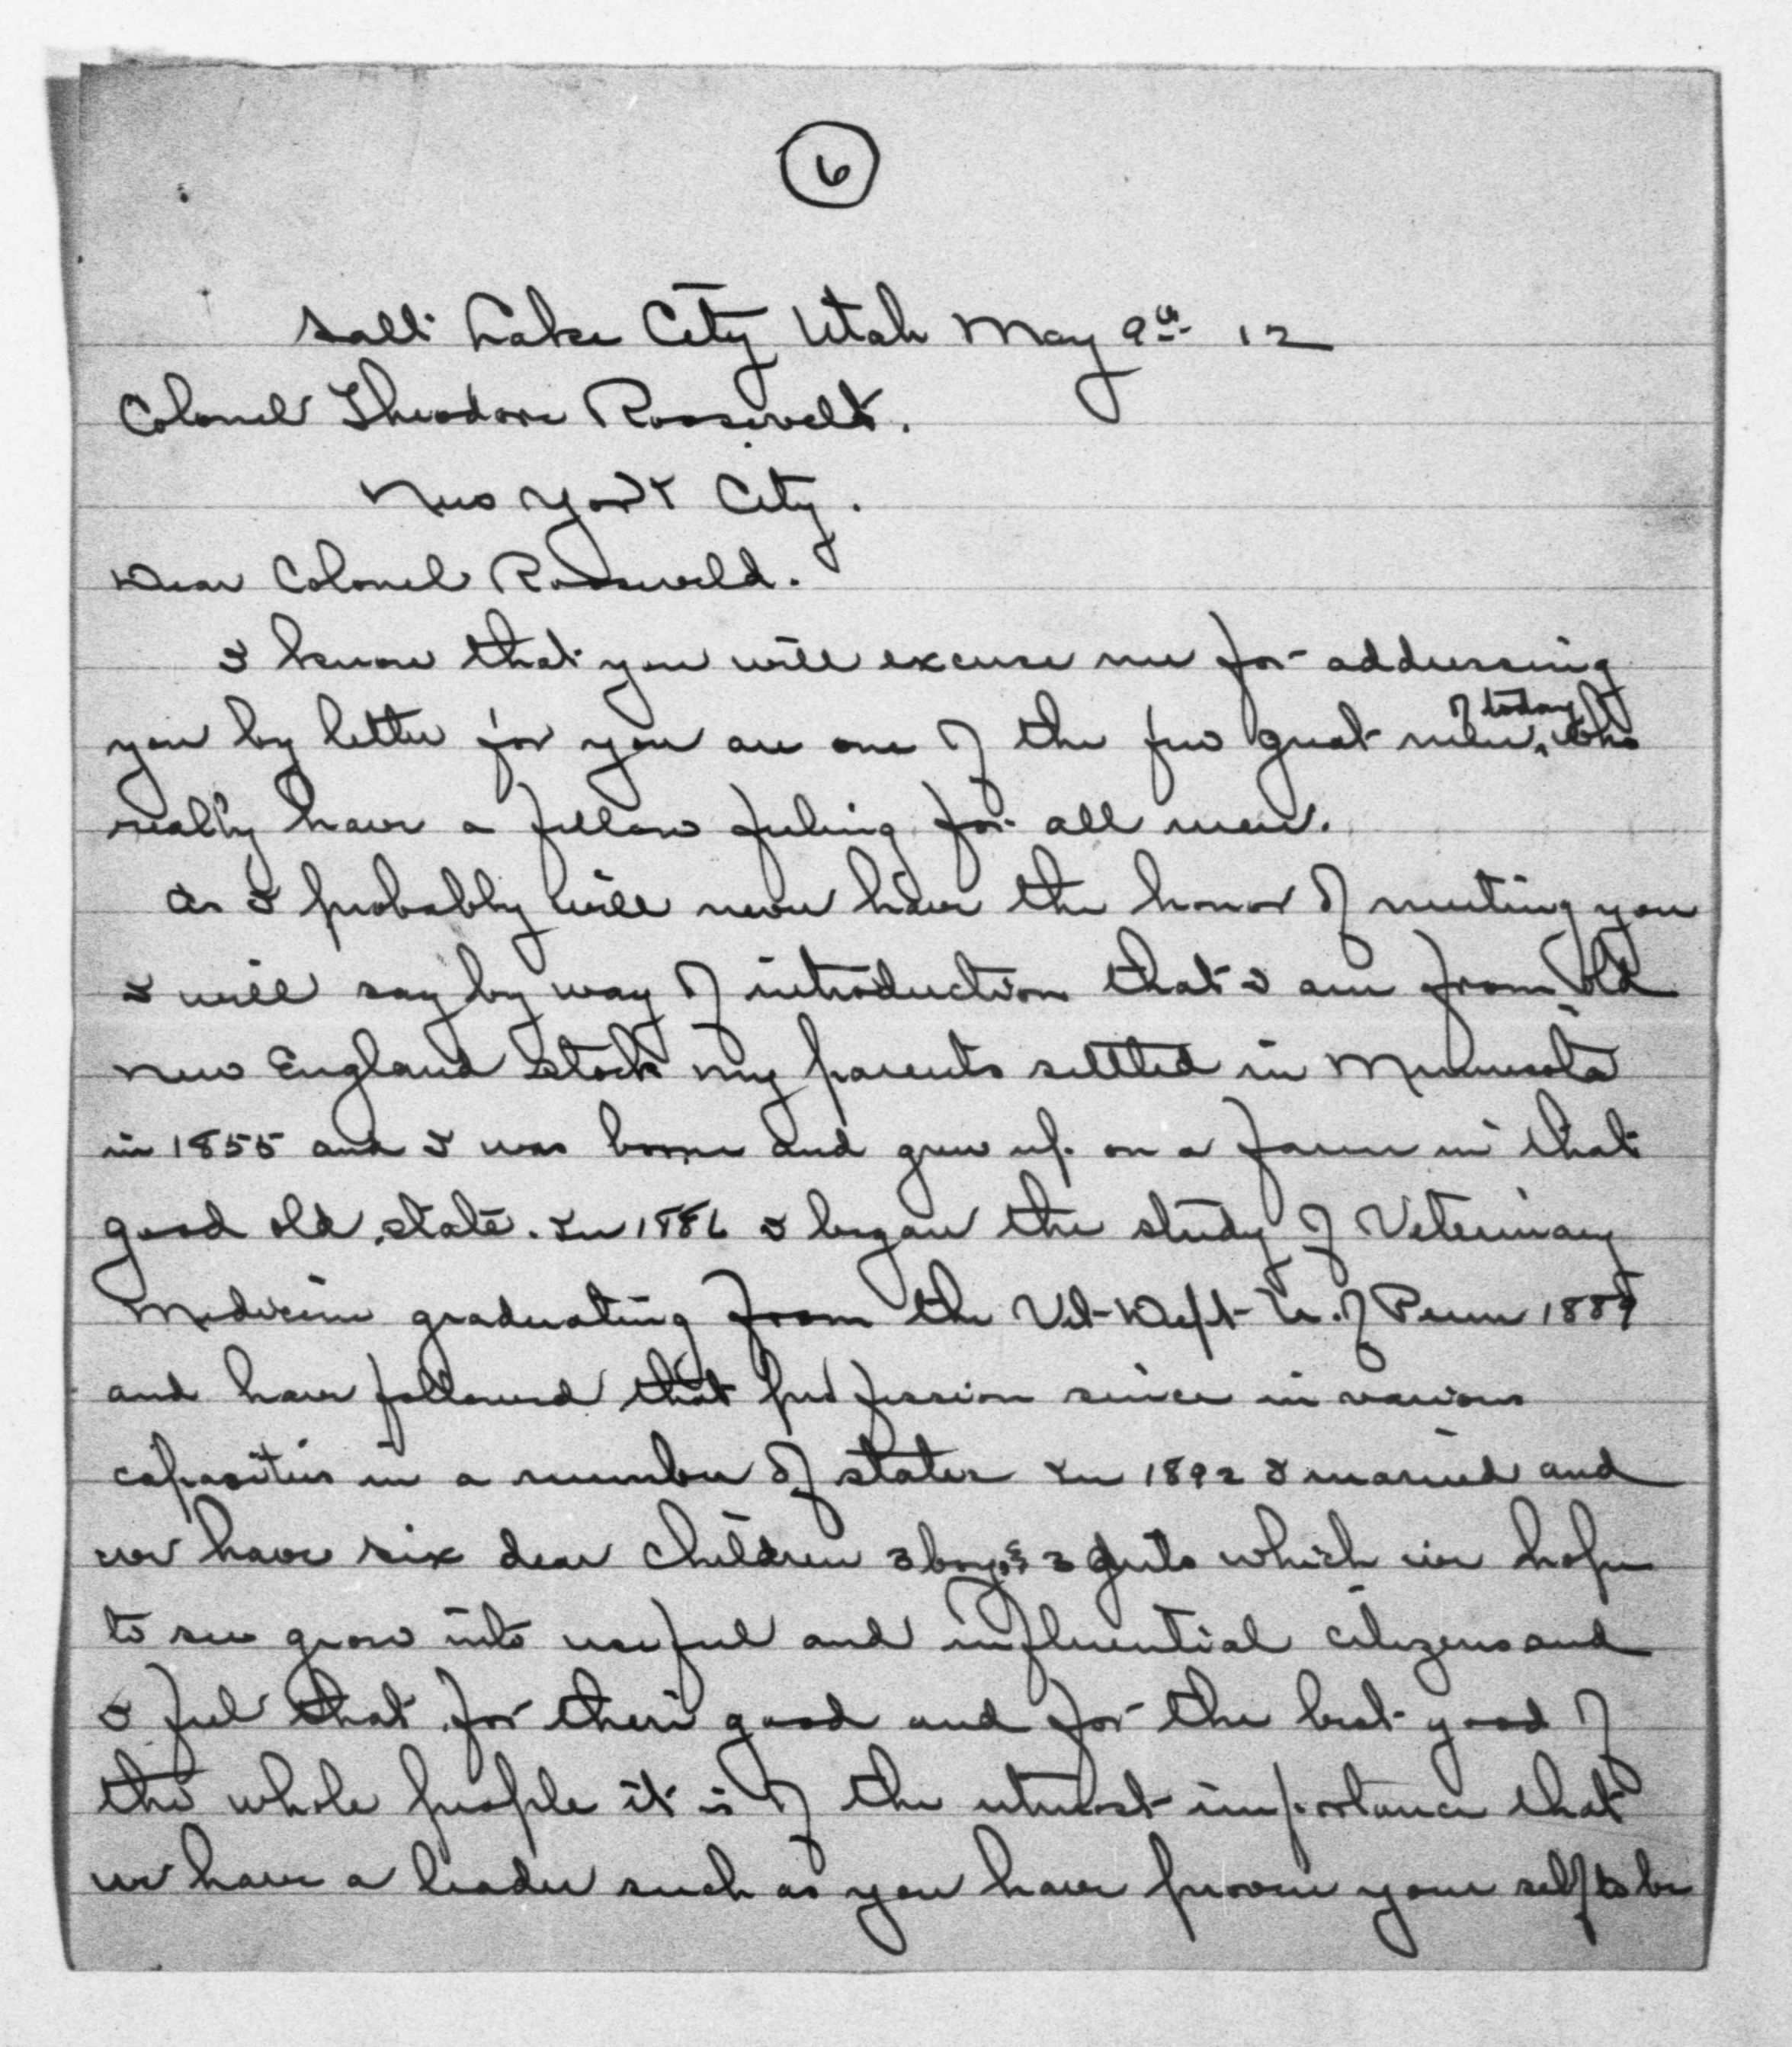 6
Salt Lake City Utah May 9th 12
Colonel Theodore Roosevelt.
New York City.
Dear Colonel Rooseveld.
I know that you will excuse me for addressing
you by letter for you are one of the few great men, of today who
really have a fellow feeling for all men.
As I probably will never have the honor of meeting you
I will say by way of introduction that I am from old
New England stock my parents settled in Minnesota
in 1855 and I was borne and grew up on a farm in that
good old state. In 1886 I began the study of Veterinary
Medicine graduating from the Vet-Dept-U. of Penn 1889
and have followed that profession since in various
capacities in a number of states In 1892 I married and
we have six dear children 3 boys & 3 Girls which we hope
to see grow into useful and influential citizens and
I feel that for their good and for the best good of
the whole people it is of the utmost importance that
we have a leader such as you have proven your self to be